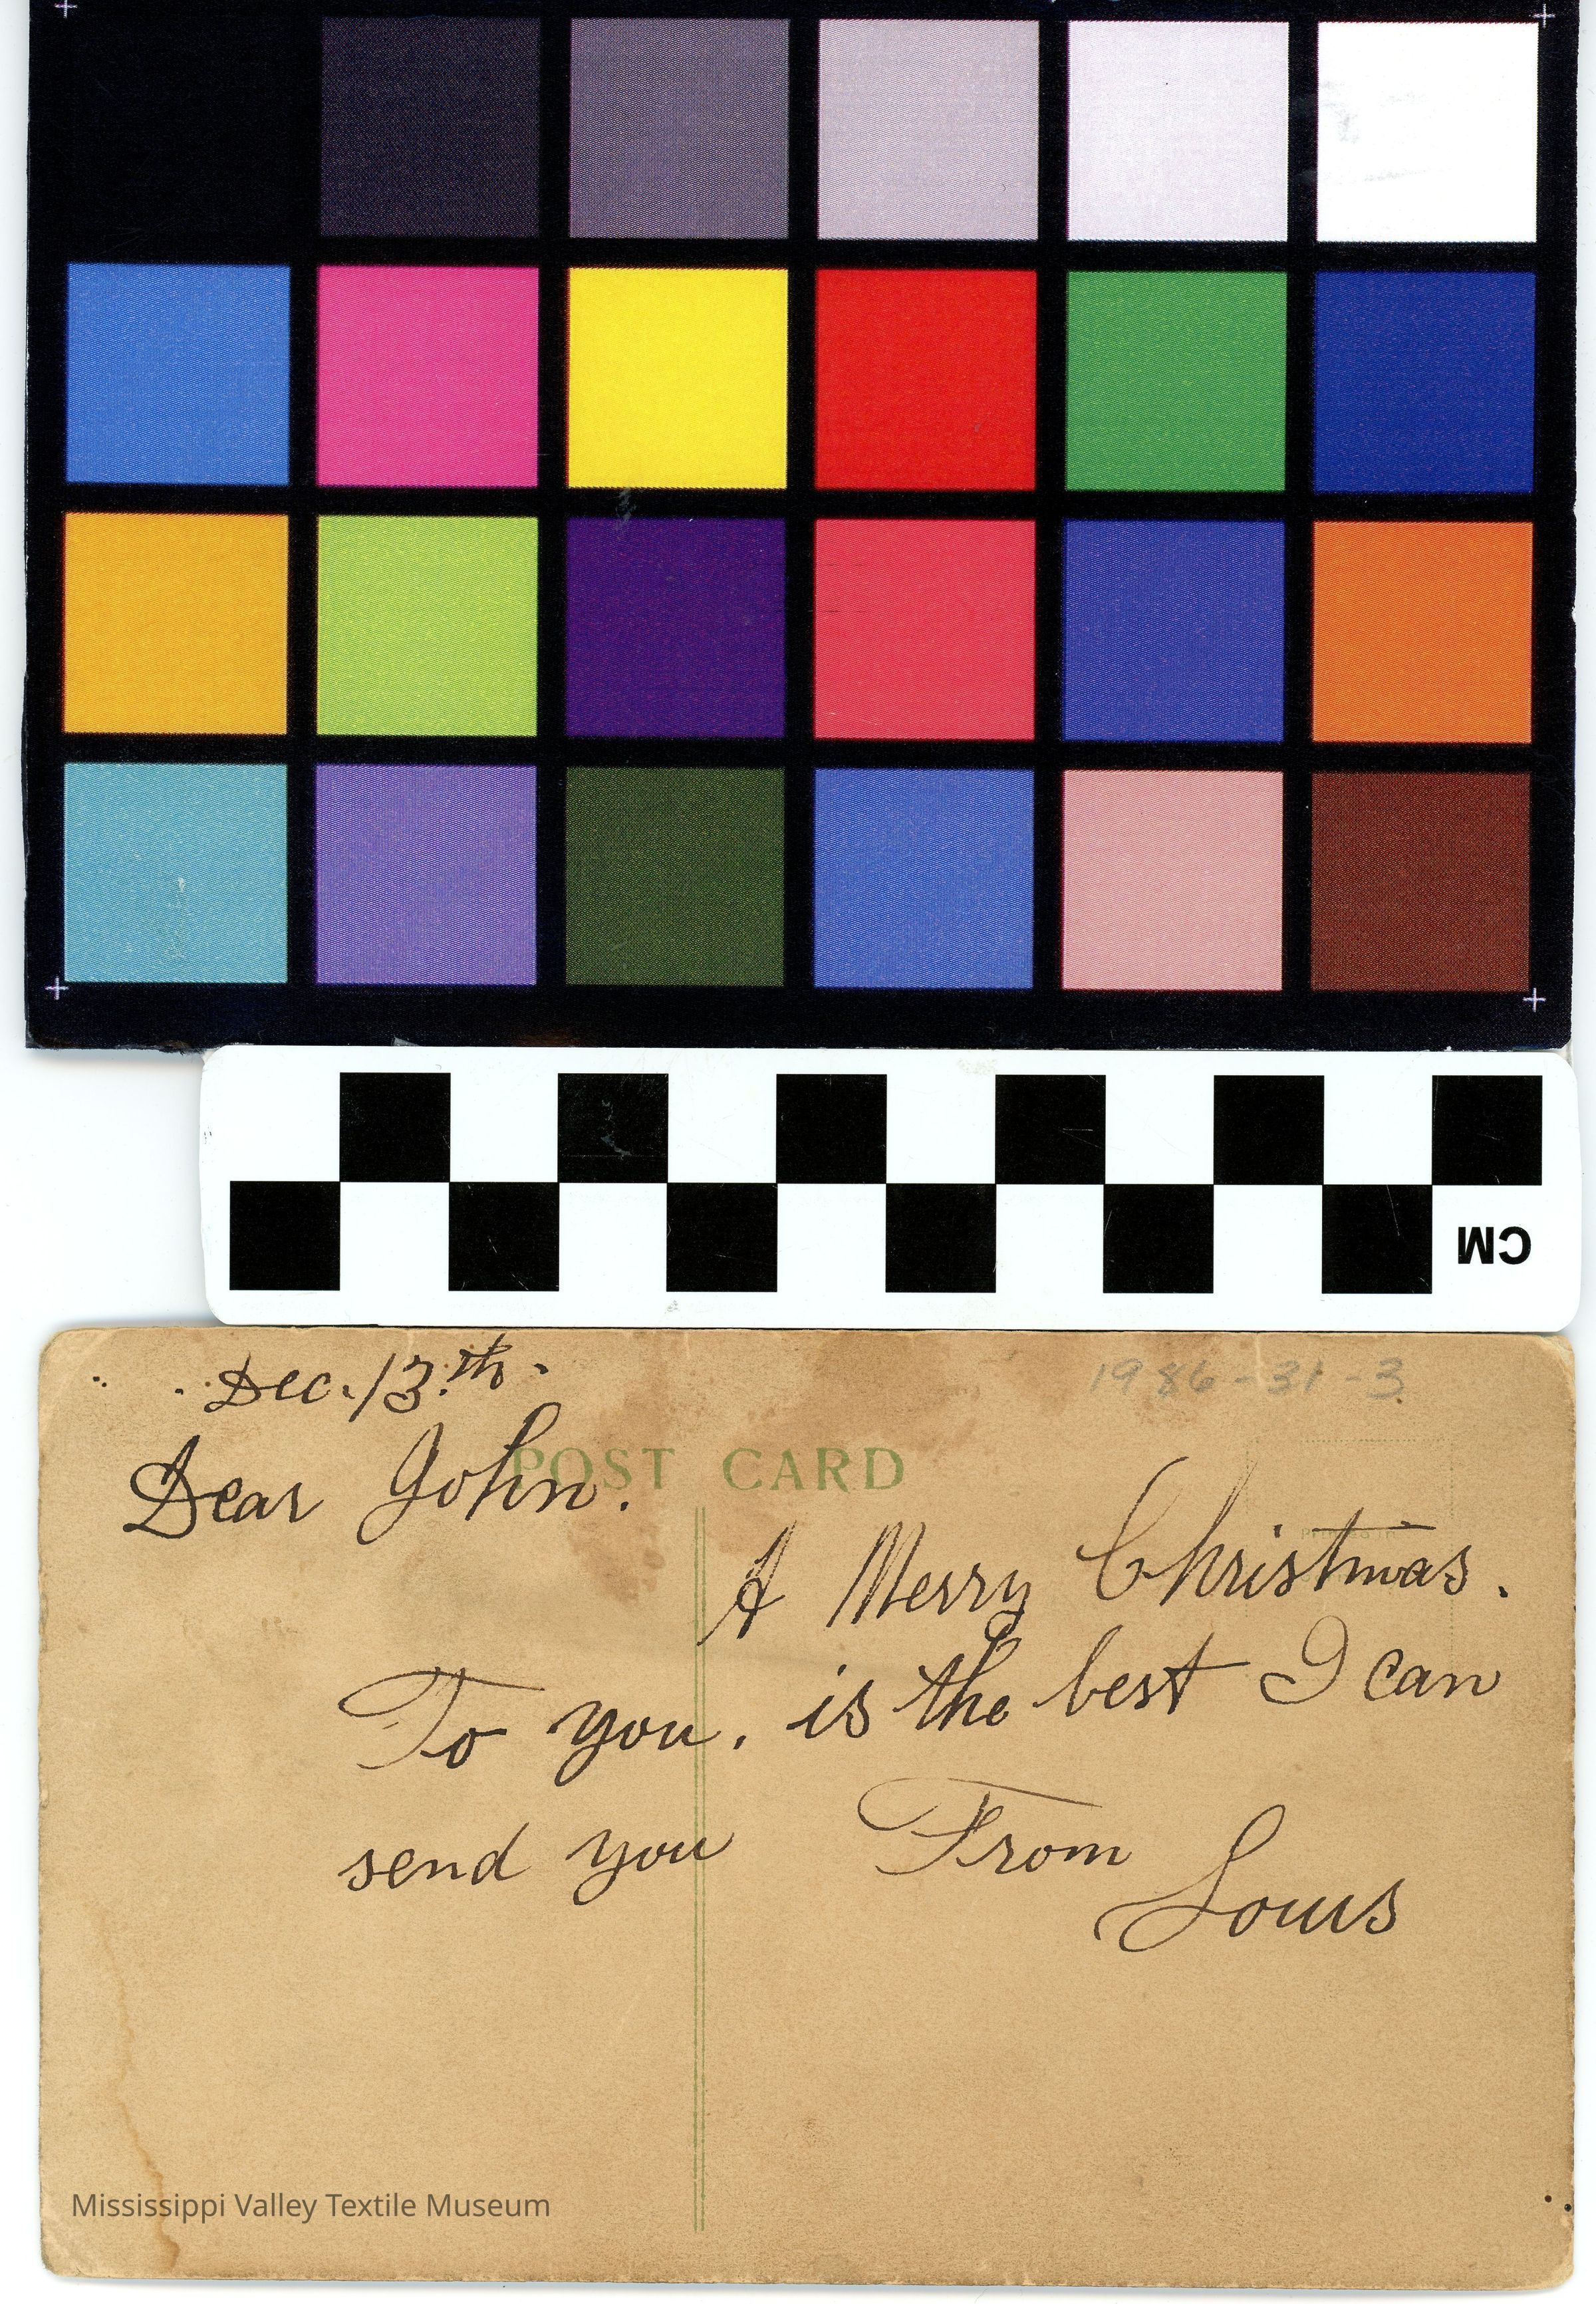 CM
Dec. 13.th.
1986-31-3
POST CARD
Dear John.
A Merry Christmas.
To you. is the best I can
send you From
Louis
Mississippi Valley Textile Museum